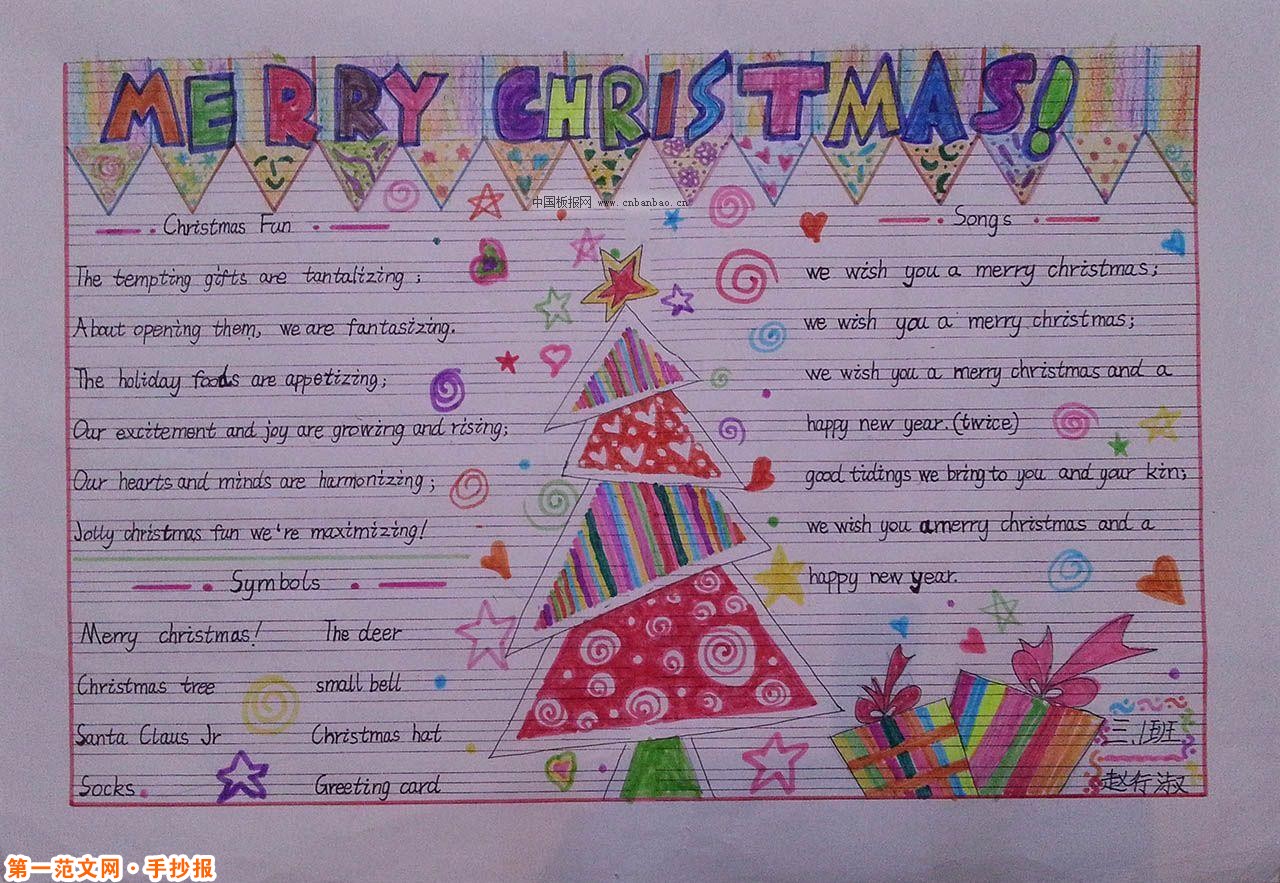 MERRY CHRISTMAS!
中国板报网 www.cnbanbao.cn
Christmas Fun
The tempting gifts are tantalizing;
About opening them, we are fantasizing.
The holiday foods are appetizing;
Our excitement and joy are growing and rising;
Our hearts and minds are harmonizing;
Jolly christmas fun we're maximizing!
Symbols
Merry christmas! The deer
Christmas tree small bell
Santa Claus Jr Christmas hat
Socks Greeting card
Songs
we wish you a merry christmas;
we wish you a merry christmas;
we wish you a merry christmas and a
happy new year.(twice)
good tidings we bring to you and your kin;
we wish you a merry christmas and a
happy new year.
三.1班
赵行淑
第一范文网·手抄报